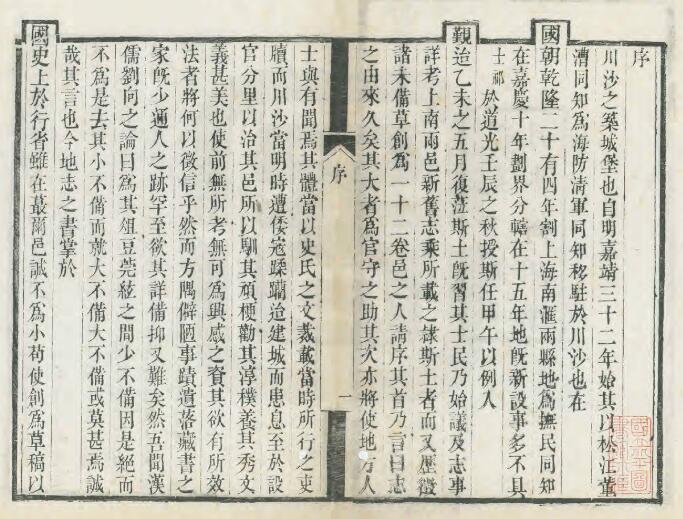 序
川沙之築城堡也自明嘉靖三十二年始其以松江董
漕同知爲海防淸軍同知移駐於川沙也在
國朝乾隆二十有四年割上海南滙兩縣地爲撫民同知
在嘉慶十年劃界分轄在十五年地旣新設事多不具
士祁於道光壬辰之秋授斯任甲午以例入
覲迨乙未之五月復蒞斯土旣習其士民乃始議及志事
詳考上南兩邑新舊志乘所載之隷斯土者而又歷徵
諸未備草創爲一十二卷邑之人請序其首乃言曰志
之由來久矣其大者爲官守之助其次亦將使地方人
序
一
士與有聞焉其體當以史氏之文裁載當時所行之吏
牘而川沙當明時遭倭寇蹂躪迨建城而患息至於設
官分里以治其邑所以馴其頑梗勸其淳樸養其秀文
義甚美也使前無所考無可爲興感之資其欲有所效
法者將何以徵信乎然而方隅僻陋事蹟遺落藏書之
家旣少通人之跡罕至欲其詳備抑又難矣然吾聞漢
儒劉向之論曰爲其俎豆莞絃之間少不備因是絕而
不爲是去其小不備而就大不備大不備或莫甚焉誠
哉其言也今地志之書掌於
國史上於行省雖在蕞爾邑誠不爲小苟使創爲草稿以